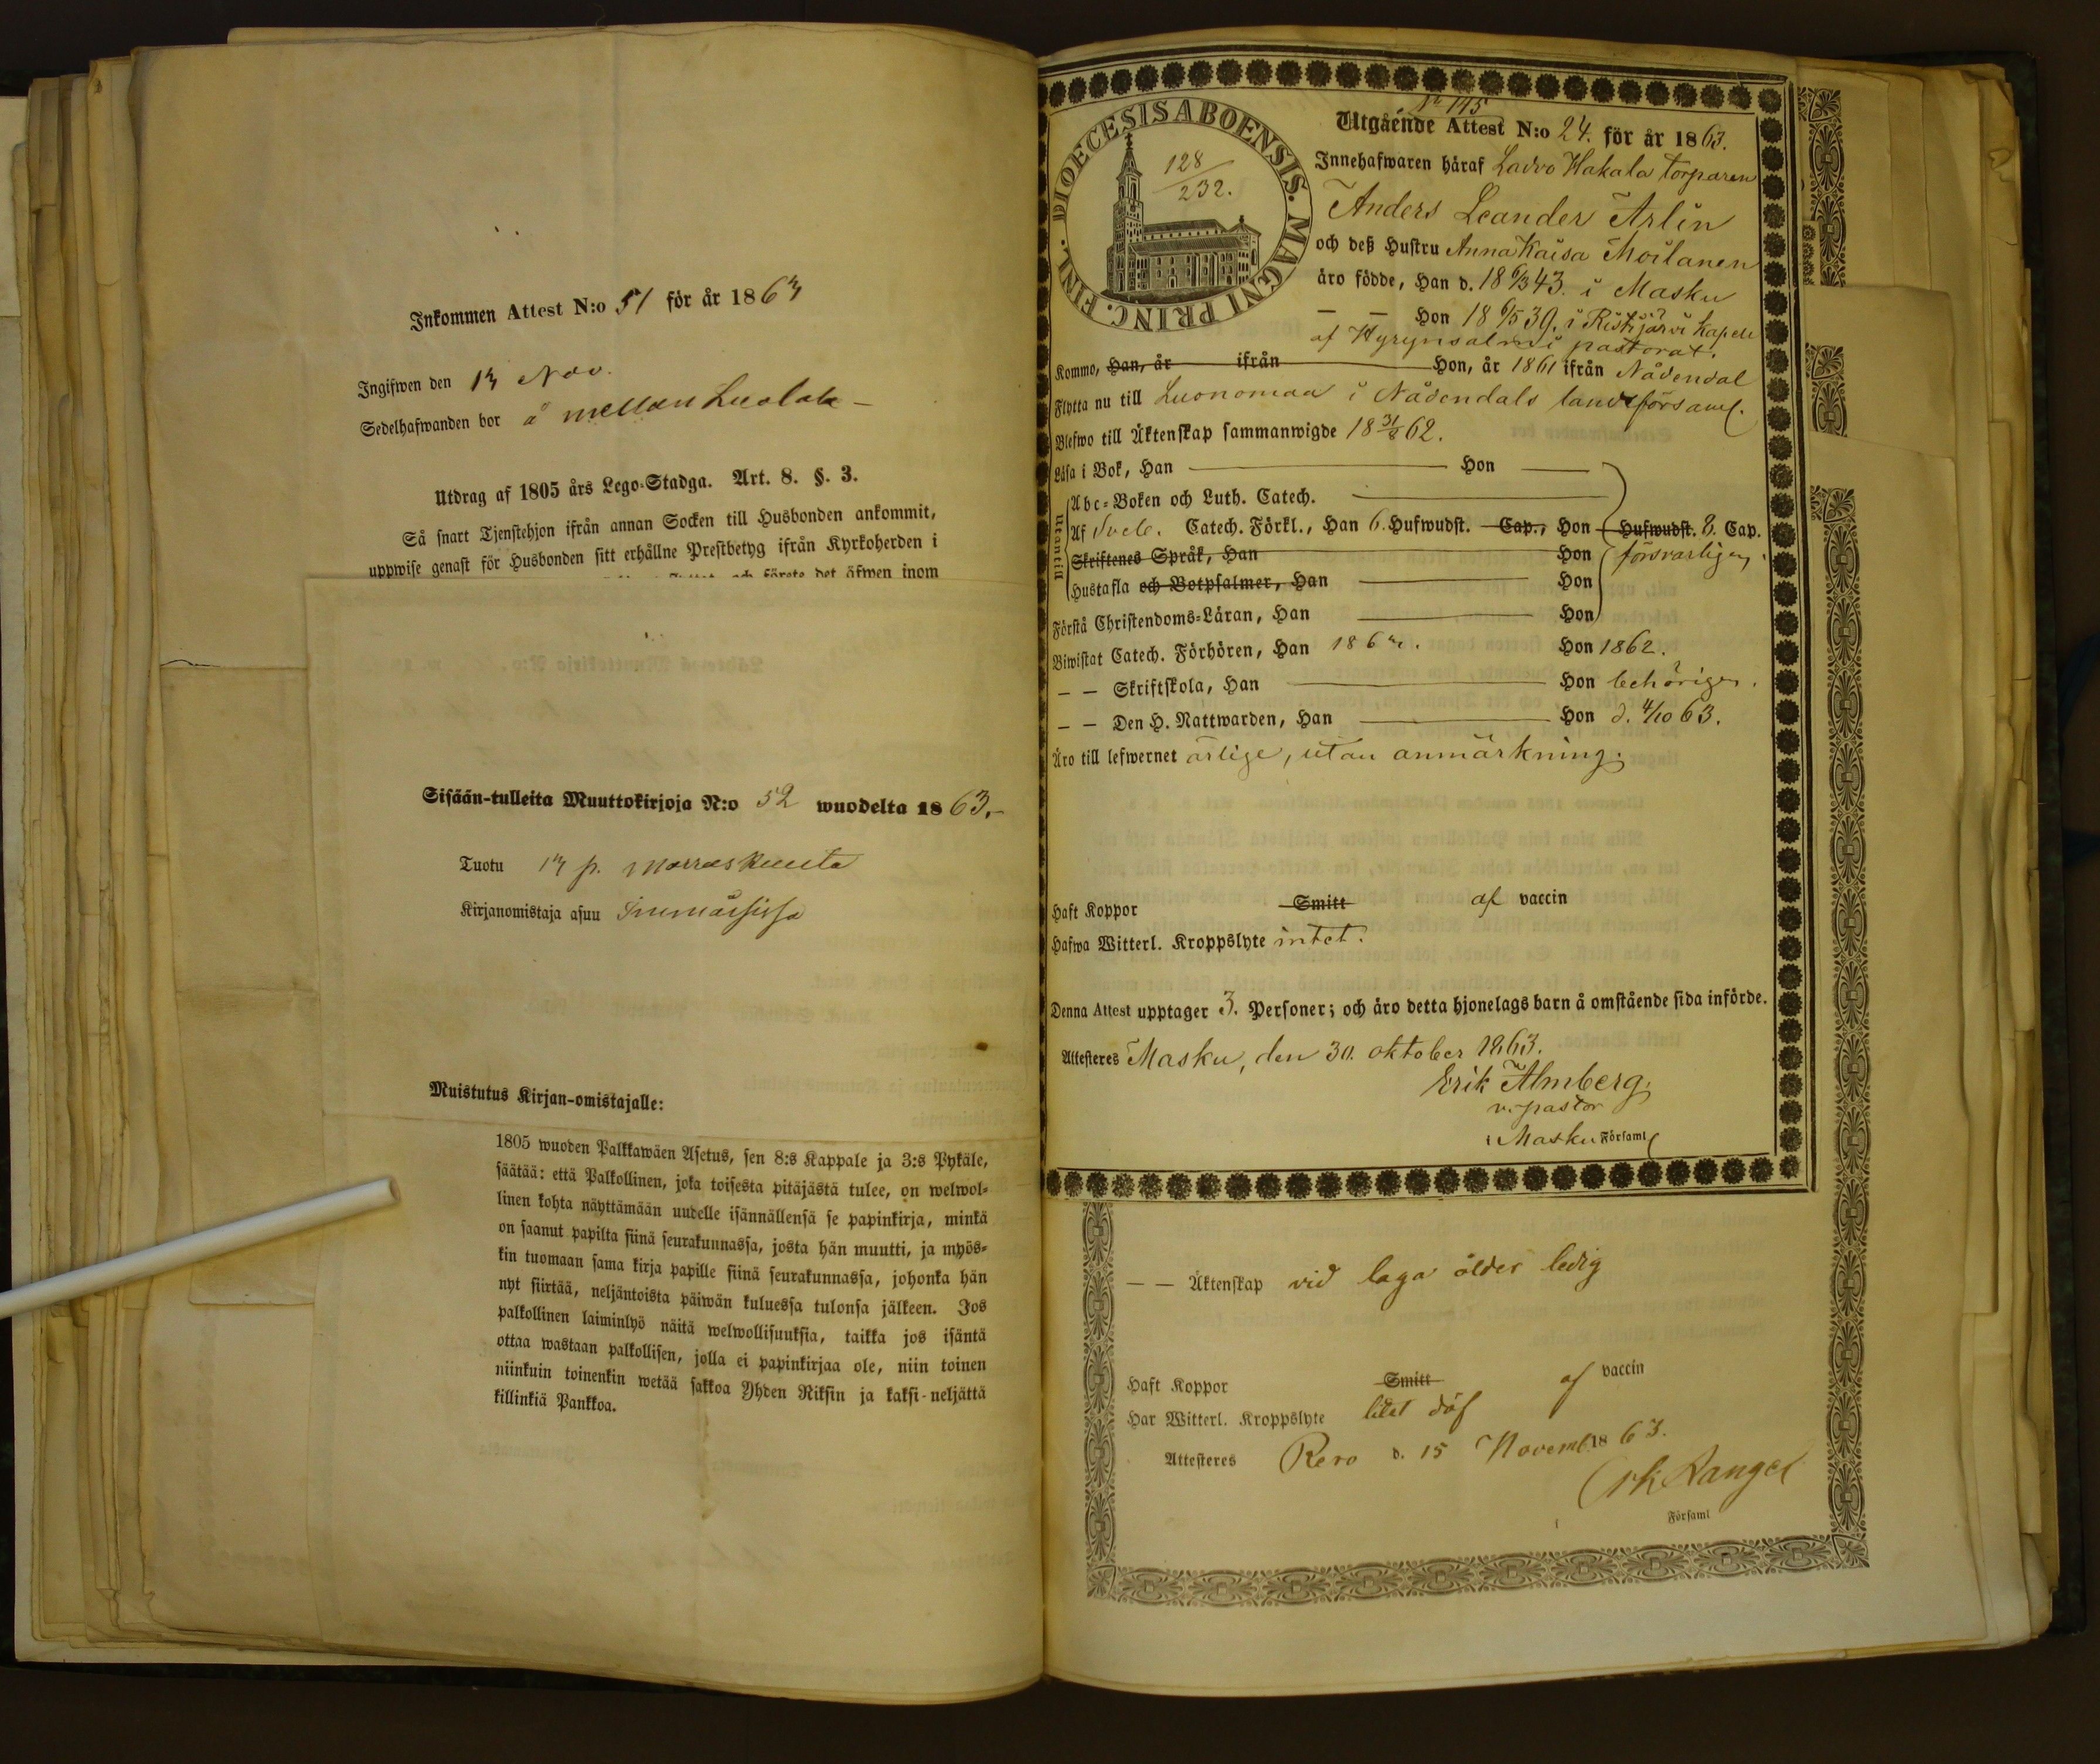 Inkommen Attest N:o 51 för år 1863
Ingifwen den 13 Nov.
Sedelhafwanden bor å mellan Luolala
Utdrag af 1805 års Lego-Stadga. Art. 8. §. 3.
Så snart Tjenstehjon ifrån annan Socken till Husbonden ankommit,
uppwise genast för Husbonden sitt erhållne Prestbetyg ifrån Kyrkoherden i
och förete det äfwen inom
Sisään-tulleita Muuttokirjoja N:o 52 wuodelta 1863.
Tuotu 13 p. Marraskuuta
Kirjanomistaja asuu
Muistutus Kirjan-omistajalle:
1805 wuoden Palkkawäen Asetus, sen 8:s Kappale ja 3:s Pykäle,
säätää: että Palkollinen, joka toisesta pitäjästä tulee, on welwol-
linen kohta näyttämään uudelle isännällensä se papinkirja, minkä
on saanut papilta siinä seurakunnassa, josta hän muutti, ja myös-
kin tuomaan sama kirja papille siinä seurakunnassa, johonka hän
nyt siirtää, neljäntoista päiwän kuluessa tulonsa jälkeen. Jos
palkollinen laiminlyö näitä welwollisuuksia, taikka jos isäntä
ottaa wastaan palkollisen, jolla ei papinkirjaa ole, niin toinen
niinkuin toinenkin wetää sakkoa Yhden Riksin ja kaksi-neljättä
killinkiä Pankkoa.
DIOECESIS ABOENSIS. MAGNI PRINC. FINL.
128/232.
No 145
Utgående Attest N:o 24. för år 1863.
Innehafwaren häraf Ladvo Hakala torparen
Anders Leander Arlin
och deß Hustru Anna Kaisa Moilanen
äro födde, Han d. 18 6/3 43. i Masku
— — Hon 18 6/5 39. i Ristijärvi Kapell
af Hyrynsalmi pastorat.
Kommo, Han, år ifrån Hon, år 1861 ifrån Nådendal
Flytta nu till Luonomaa i Nådendals landsförsaml.
Blefwo till Äktenskap sammanwigde 18 31/8 62.
Läsa i Bok, Han Hon
Utantill
Abc-Boken och Luth. Catech.
Af Sveb. Catech. Förkl., Han 6. Hufwudst. Cap., Hon Hufwudst. 8. Cap.
Skriftenes Språk, Han Hon försvarligen
Hustafla och Botpsalmer, Han Hon
Förstå Christendoms-Läran, Han Hon
Biwistat Catech. Förhören, Han 1862. Hon 1862.
— — Skriftskola, Han Hon behörigen.
— — Den H. Nattwarden, Han Hon d. 4/10 63.
Äro till lefwernet ärlige, utan anmärkning.
Haft Koppor Smitt af vaccin
Hafwa Witterl. Kroppslyte intet.
Denna Attest upptager 3. Personer; och äro detta hjonelags barn å omstående sida införde.
Attesteres Masku, den 30. oktober 1863.
Erik Almberg.
v. pastor
i Masku Församl
— — Äktenskap vid laga ålder ledig
Haft Koppor Smitt af vaccin
Har Witterl. Kroppslyte litet döf
Attesteres Rero d. 15 Novemb. 1863.
Församl